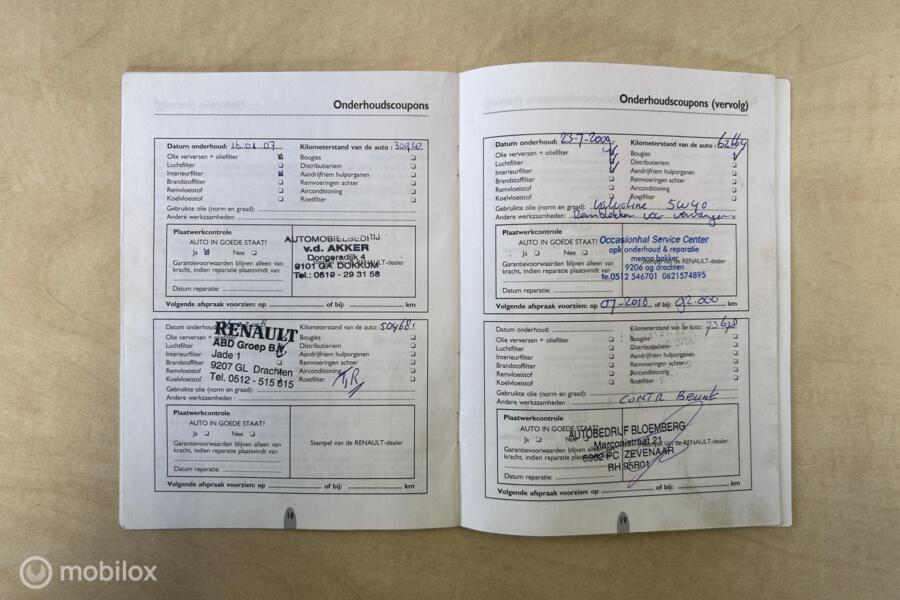 Onderhoudscoupons
Datum onderhoud: 16.01.07 Kilometerstand van de auto : 30940
Olie verversen + oliefilter Bougies
Luchtfilter Distributieriem
Interieurfilter Aandrijfriem hulporganen
Brandstoffilter Remvoeringen achter
Remvloeistof Airconditioning
Koelvloeistof Roetfilter
Gebruikte olie (norm en graad):
Andere werkzaamheden :
Plaatwerkcontrole
AUTO IN GOEDE STAAT?
Ja Nee
Garantievoorwaarden blijven alleen van
kracht, indien reparatie plaatsvindt van
Datum reparatie:
AUTOMOBIELBEDRIJF
v.d. AKKER
Dongeradijk 4
9101 GA DOKKUM
Tel.: 0519 - 29 31 58
Volgende afspraak voorzien: op of bij: km
Datum onderhoud: Kilometerstand van de auto: 50468
Olie verversen + Bougies
Luchtfilter Distributieriem
Interieurfilter Aandrijfriem hulporganen
Brandstoffilter Remvoeringen achter
Remvloeistof Airconditioning
Koelvloeistof Roetfilter
RENAULT
ABD Groep B.V.
Jade 1
9207 GL Drachten
Tel. 0512 - 515 615
Gebruikte olie (norm en graad):
Andere werkzaamheden :
Plaatwerkcontrole
AUTO IN GOEDE STAAT?
Ja Nee
Garantievoorwaarden blijven alleen van
kracht, indien reparatie plaatsvindt van
Stempel van de RENAULT-dealer
Datum reparatie:
Volgende afspraak voorzien: op of bij: km
18
Onderhoudscoupons (vervolg)
Datum onderhoud: 23-7-2009 Kilometerstand van de auto: 62664
Olie verversen + oliefilter Bougies
Luchtfilter Distributieriem
Interieurfilter Aandrijfriem hulporganen
Brandstoffilter Remvoeringen achter
Remvloeistof Airconditioning
Koelvloeistof Roetfilter
Gebruikte olie (norm en graad): Valvoline 5W40
Andere werkzaamheden: Remblokken voor vervangen
Plaatwerkcontrole
AUTO IN GOEDE STAAT?
Ja Nee
Garantievoorwaarden blijven alleen van
kracht, indien reparatie plaatsvindt van
Datum reparatie:
Occasionhal Service Center
apk onderhoud & reparatie
menno bakker
9206 ag drachten
te.0512 546701 0621574895
Volgende afspraak voorzien: op 07-2010 of bij: 92.000 km
Datum onderhoud: Kilometerstand van de auto: 73678
Olie verversen + oliefilter Bougies
Luchtfilter Distributieriem
Interieurfilter Aandrijfriem hulporganen
Brandstoffilter Remvoeringen achter
Remvloeistof Airconditioning
Koelvloeistof Roetfilter
Gebruikte olie (norm en graad):
Andere werkzaamheden :
Plaatwerkcontrole
AUTO IN GOEDE STAAT?
Ja Nee
Garantievoorwaarden blijven alleen van
kracht, indien reparatie
Datum reparatie:
AUTOBEDRIJF BLOEMBERG
Marconistraat 21
6902 PC ZEVENAAR
BH 95B01
Volgende afspraak voorzien: op of bij: km
19
mobilox